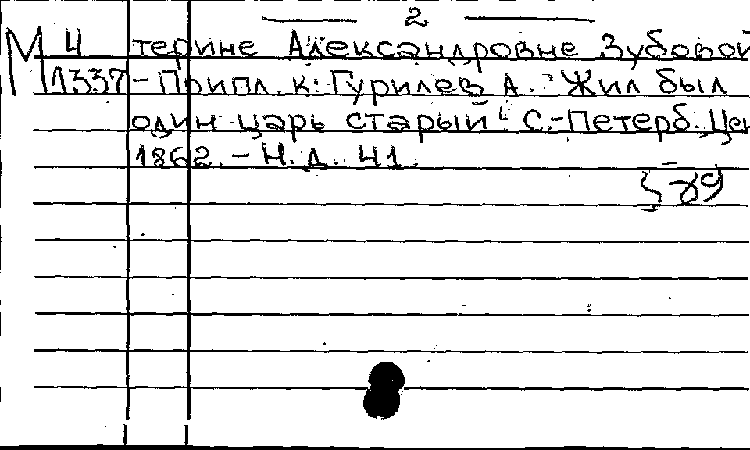 — 2 —
М 4 терине Александровне Зубовой
1337 - Припл. к: Гурилев А. "Жил был
один царь старый". С.-Петерб. Цен
1862. - Н.д. 41.